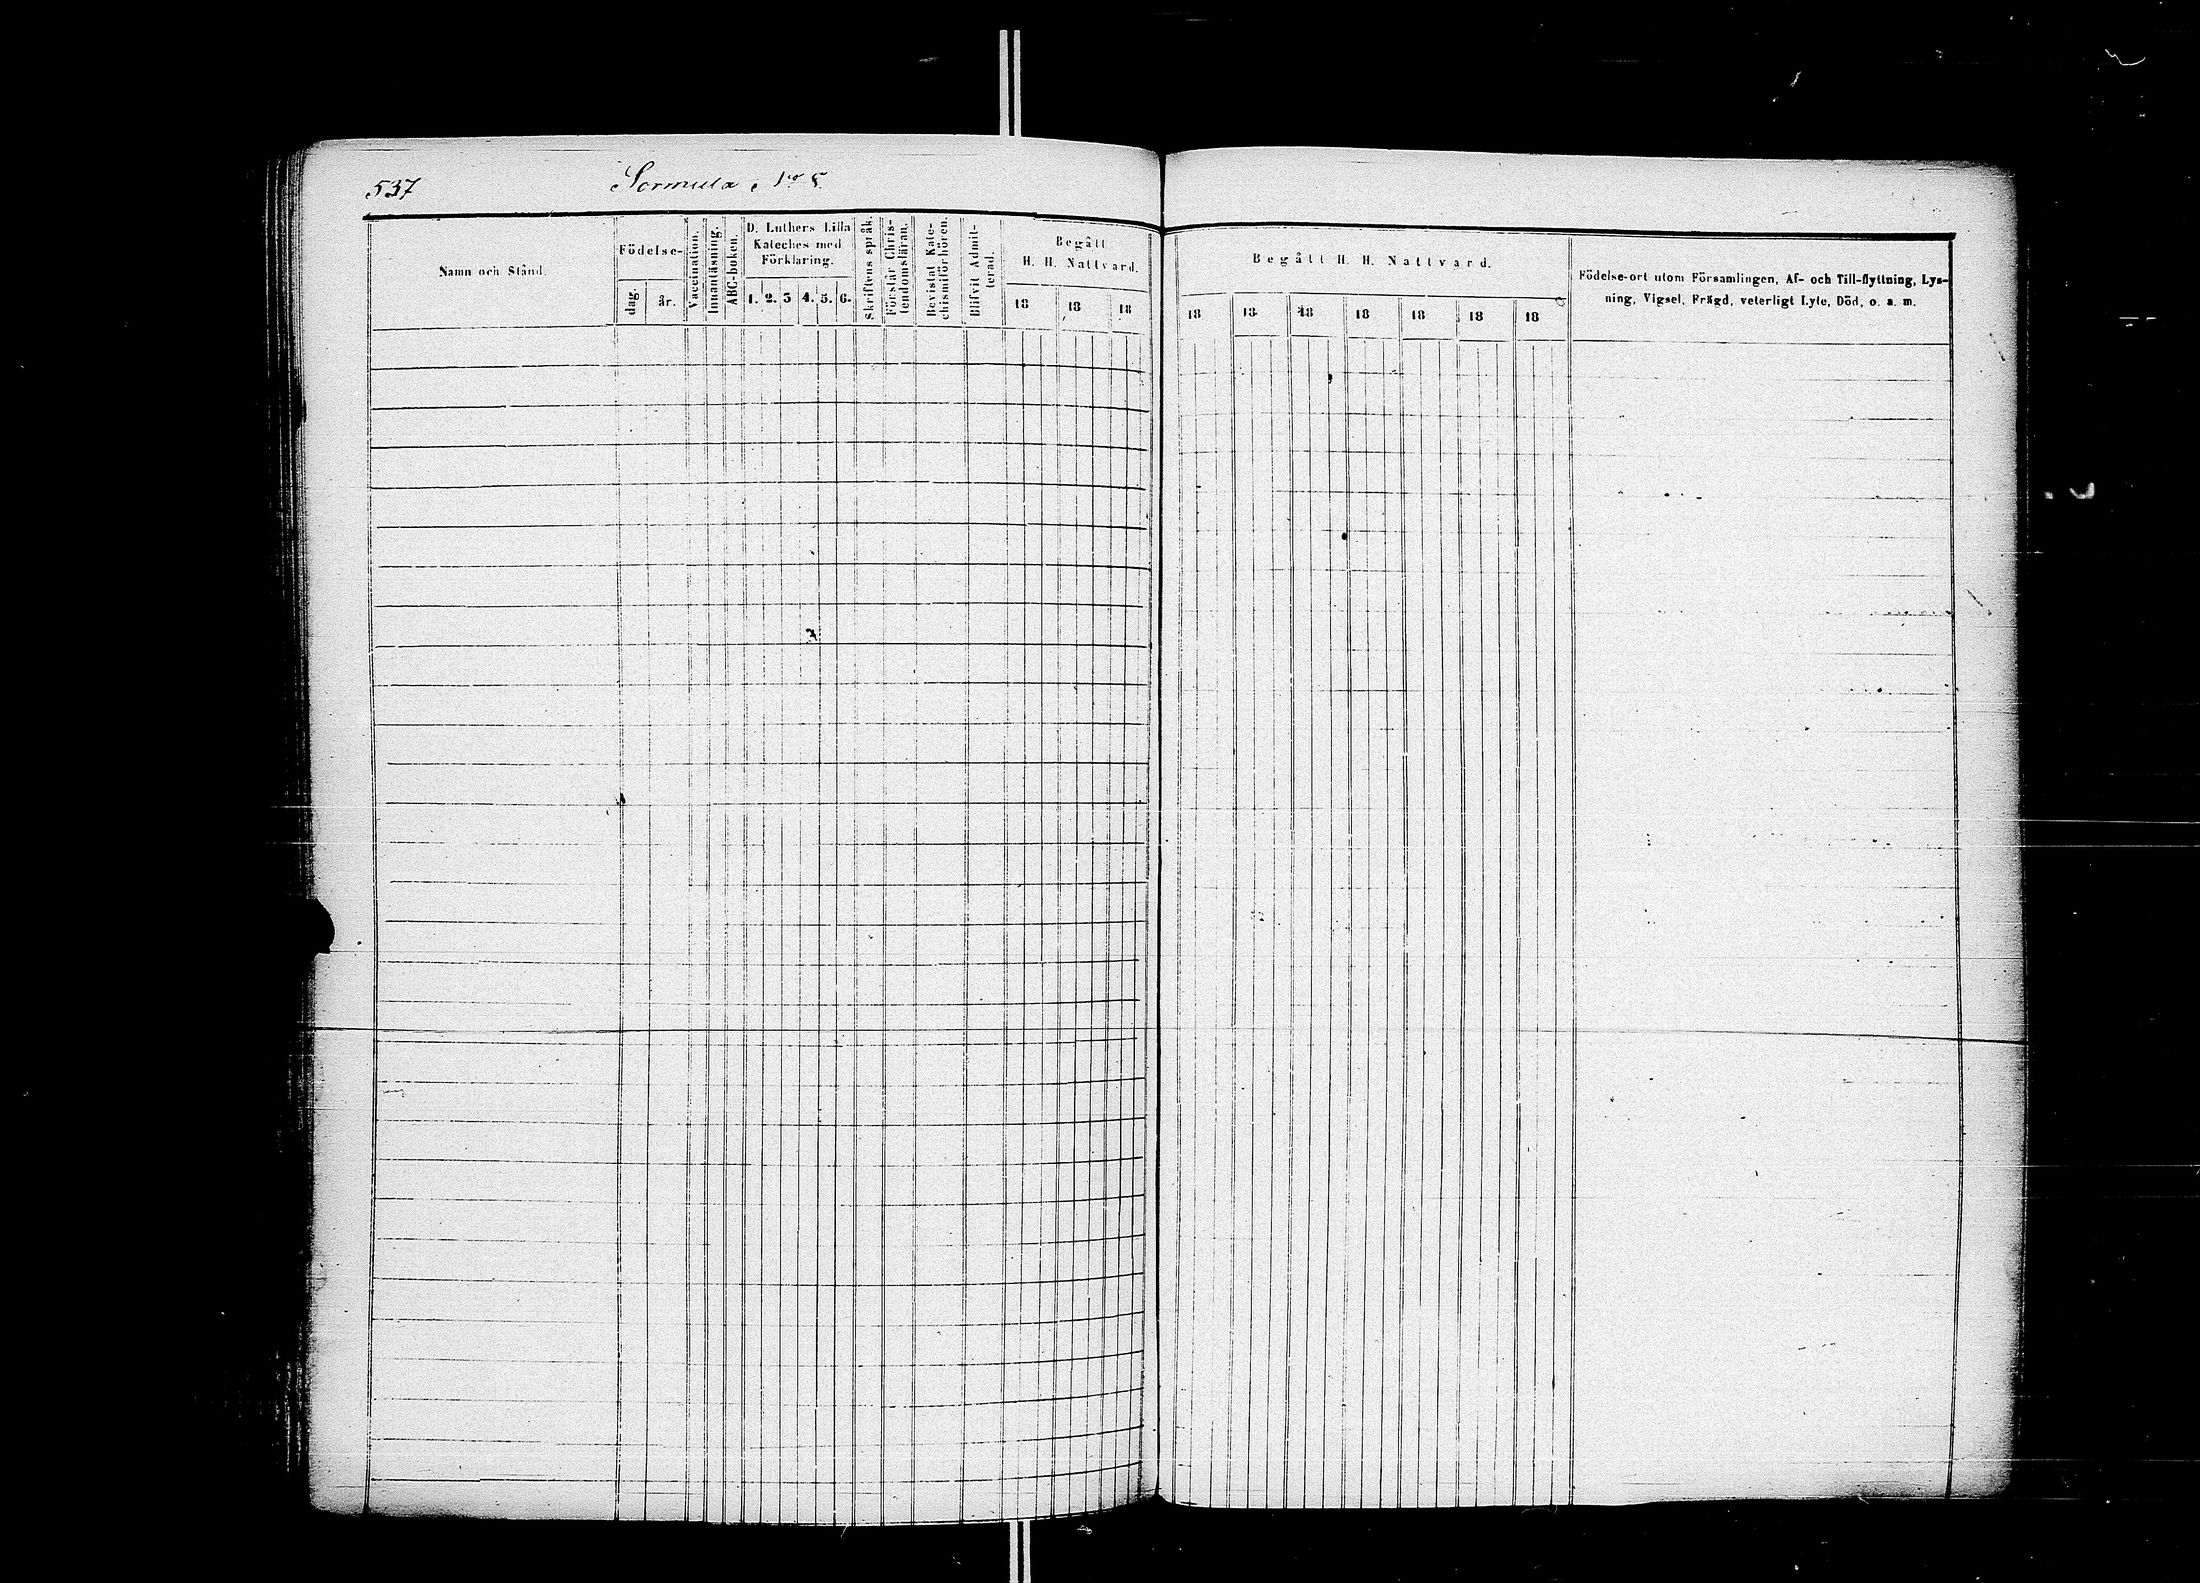 537
Sormula No 5.
Namn och Stånd.
Födelse-
dag.
år.
Vaccination.
Innanläsning.
ABC-boken.
D. Luthers Lilla
Kateches med
Förklaring.
1. 2. 3 4. 5. 6.
Skriftens språk.
Förstår Chris-
tendomsläran.
Bevistat Kate-
chismiförhören.
Blifvit Admit-
terad.
Begått
H. H. Nattvard.
18 18 18
Begått H. H. Nattvard.
18 18 18 18 18 18 18
Födelse-ort utom Församlingen, Af- och Till-flyttning, Lys-
ning, Vigsel, Frägd, veterligt Lyte, Död, o. a. m.